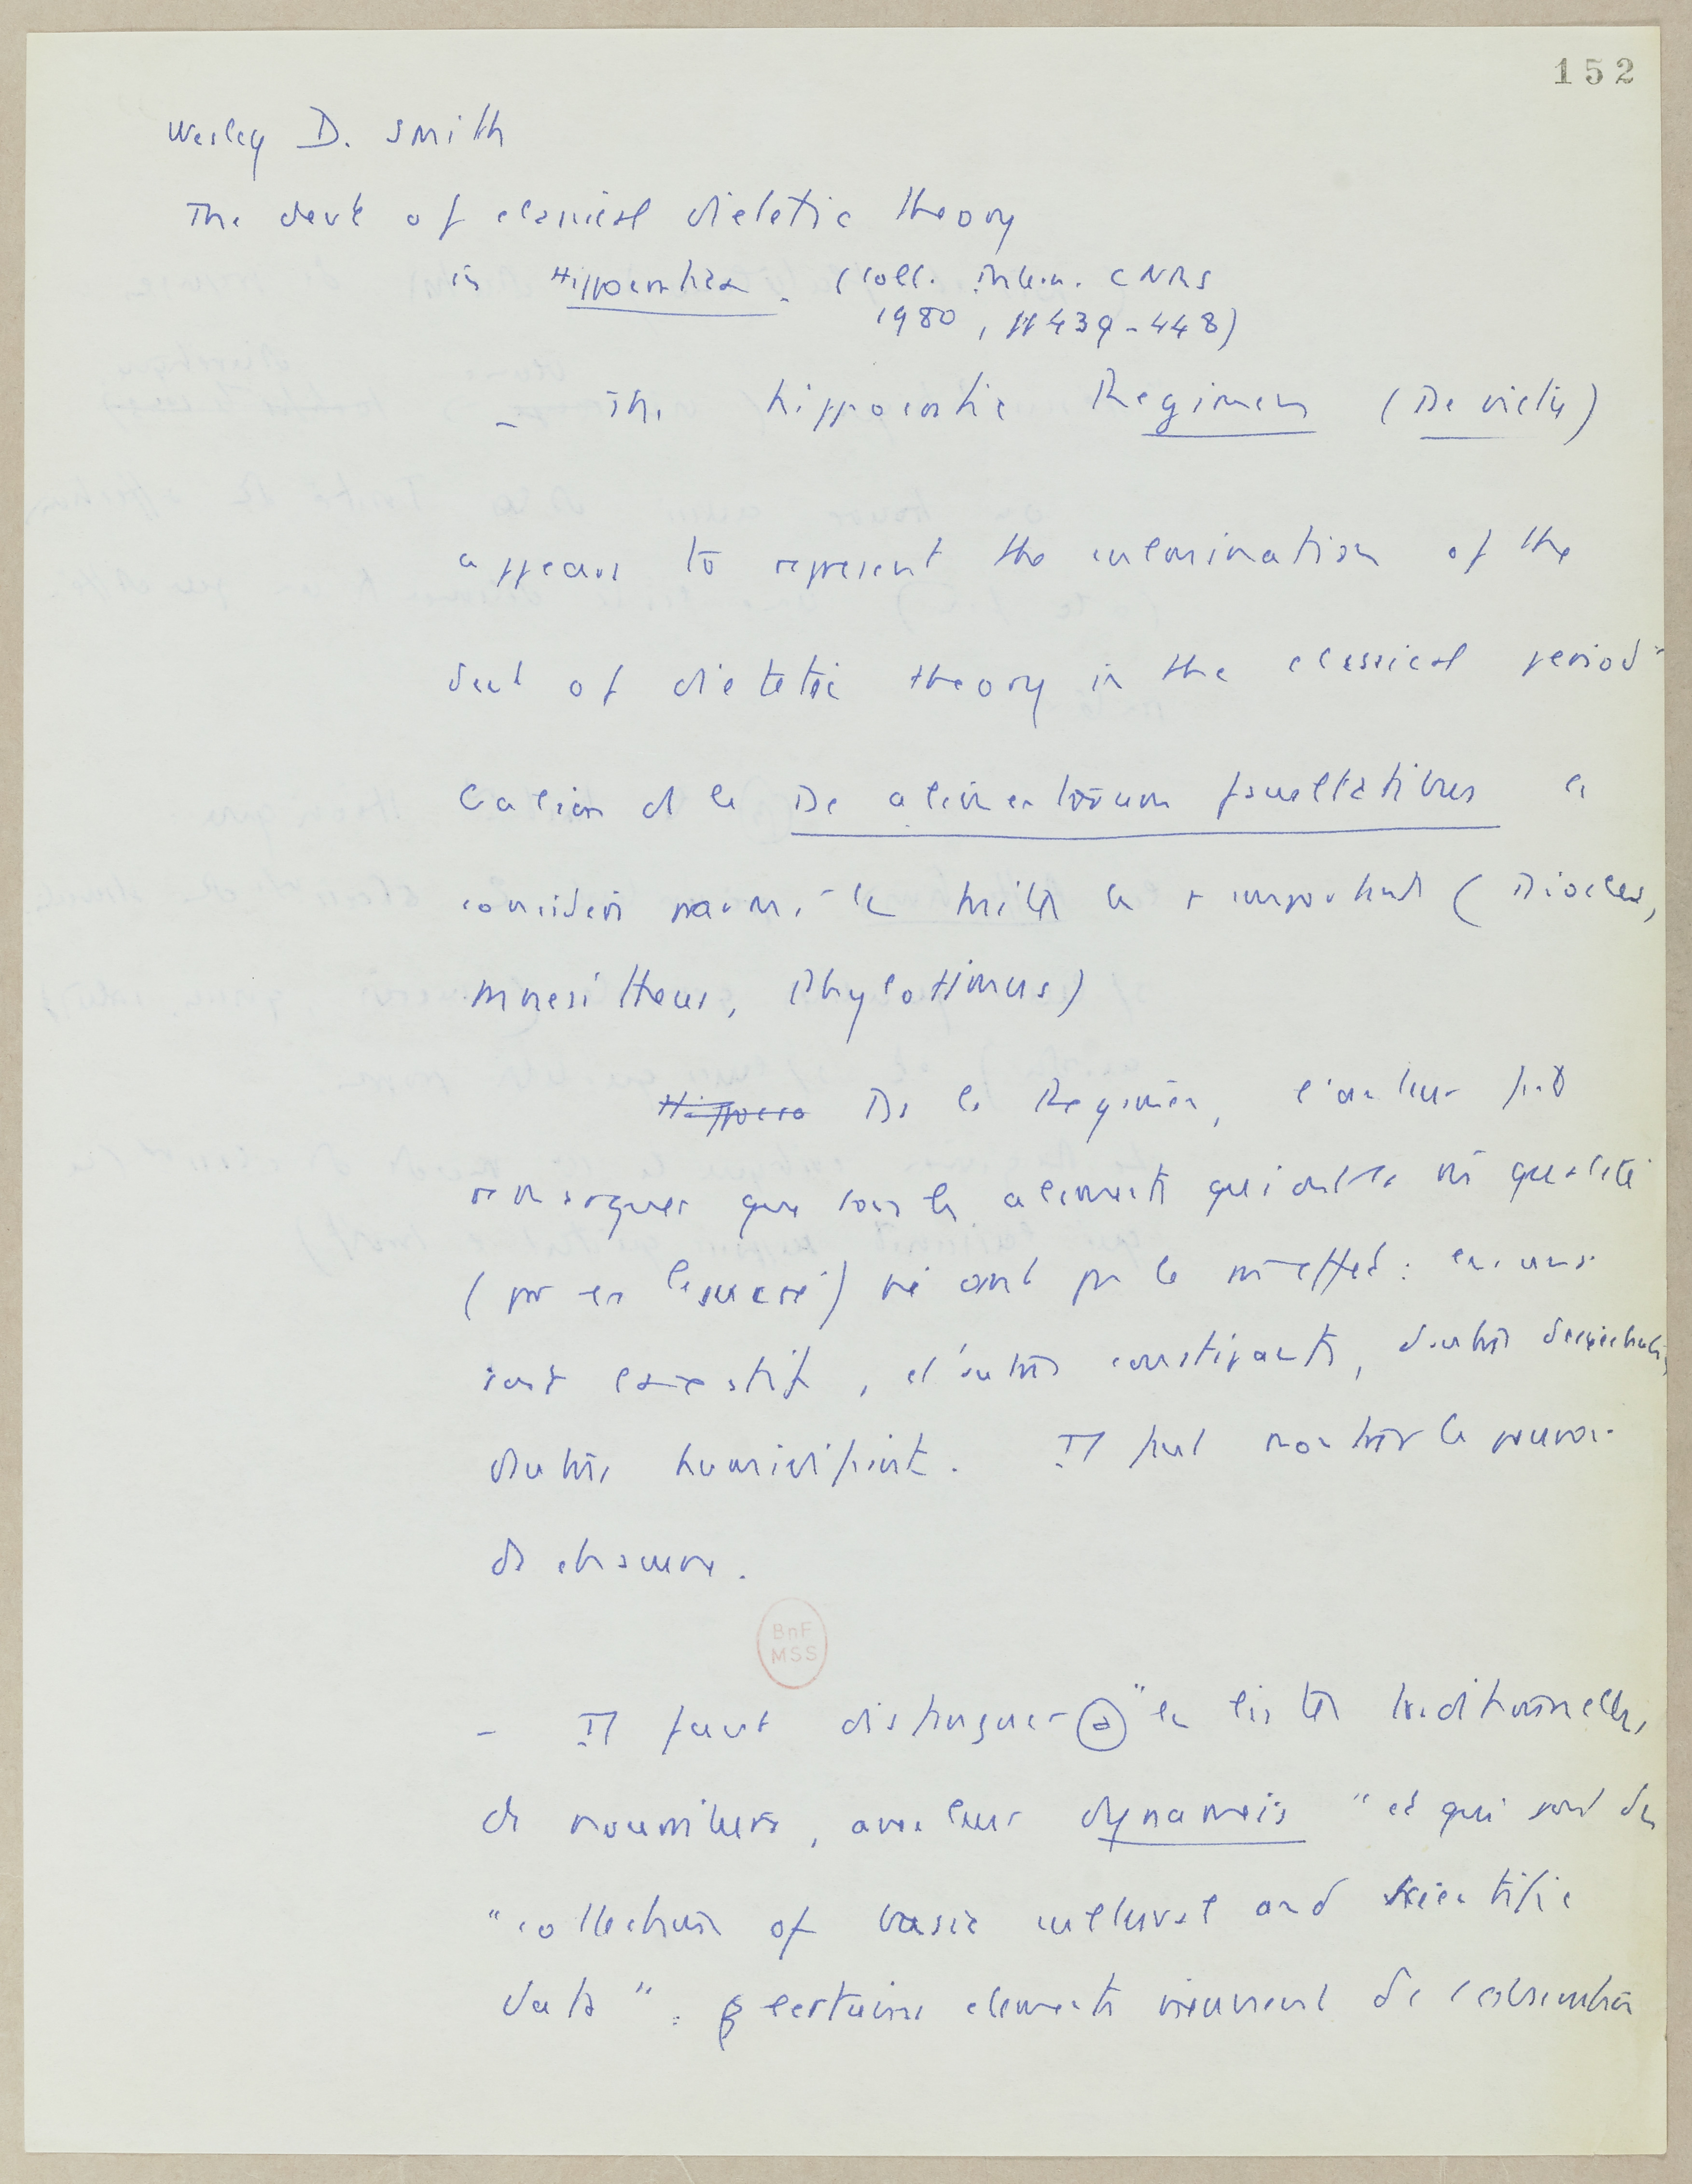 152
Wesley D. Smith
The devt of classical dietetic theory
in Hippocratica. (Coll. Intern. CNRS
1980, pp 439-448)
- The hippocratic Regimen (De victu)
appears to represent the culmination of the
devt of dietetic theory in the classical period"
Galien ds le De alimentorum facultatibus le
considère parmi les traités les + important (Diocles,
Mnesitheus, Phylotimus)
Hippocra Ds le Regimen, l'auteur fait
remarquer que tous les aliments qui ont la m̂ qualité
(par ex le sucré) n'ont pas le m̂ effet : les uns
sont laxatifs, d'autres constipants, d'autres dessechants,
d'autres humidifiant. Il faut montrer le pouvoir
de chacune.
BnF
MSS
- Il faut distinguer a "les listes traditionnelles
de nourritures, avec leur dynameis" et qui sont des
"collection of basic cultural and scientific
data". certains elements viennent de l'observation